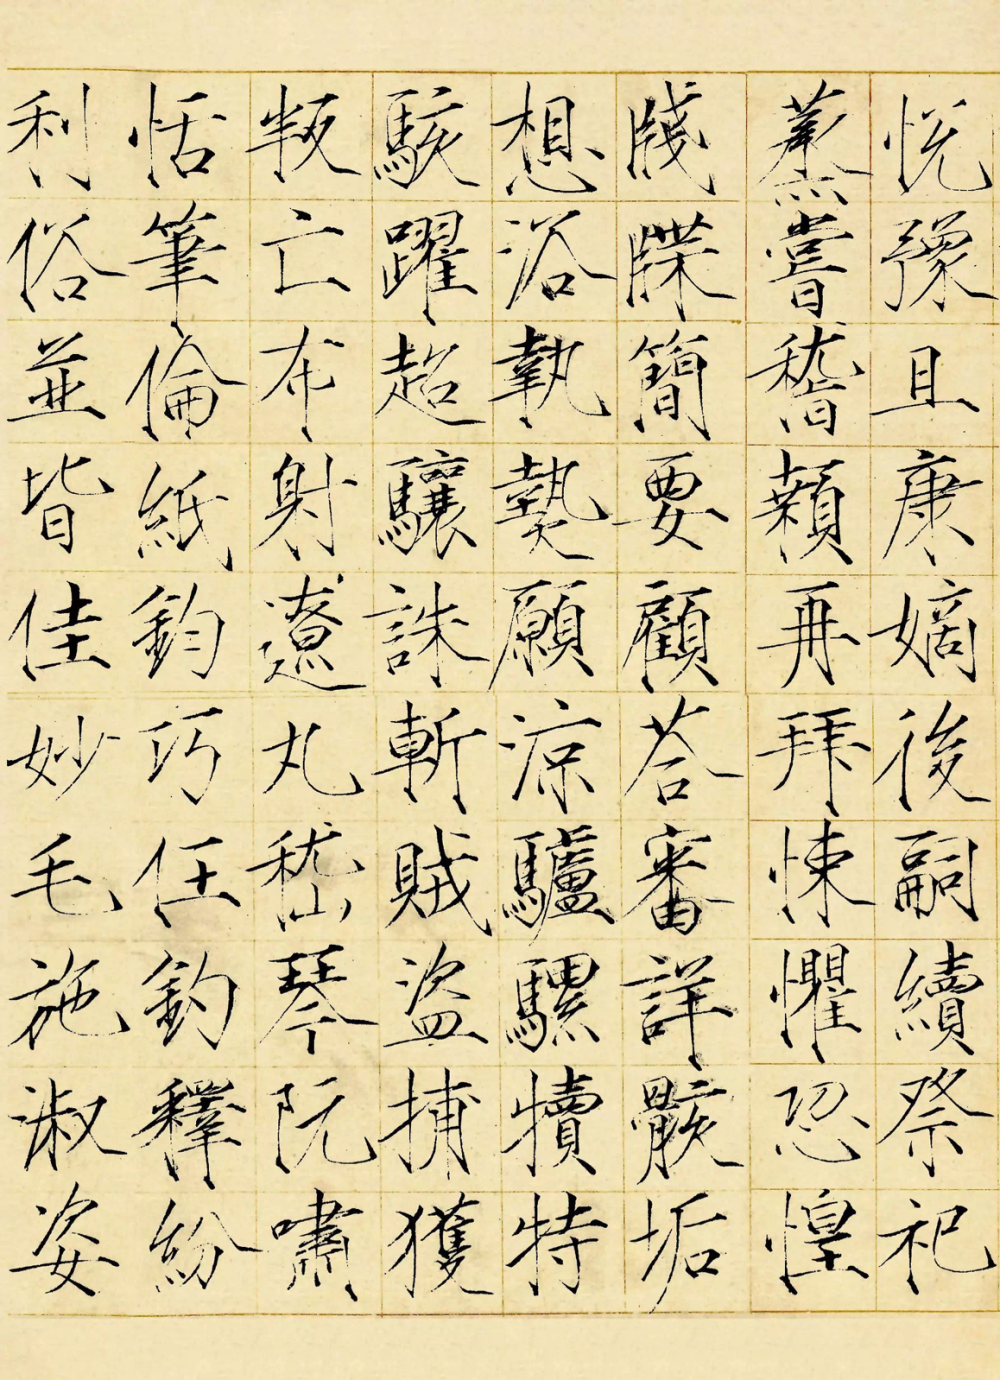 悅豫且康嫡後嗣續祭祀
蒸嘗稽顙再拜悚懼恐惶
牋牒簡要顧答審詳骸垢
想浴執熱願涼驢騾犢特
駭躍超驤誅斬賊盜捕獲
叛亡布射遼丸嵇琴阮嘯
恬筆倫紙鈞巧任釣釋紛
利俗並皆佳妙毛施淑姿